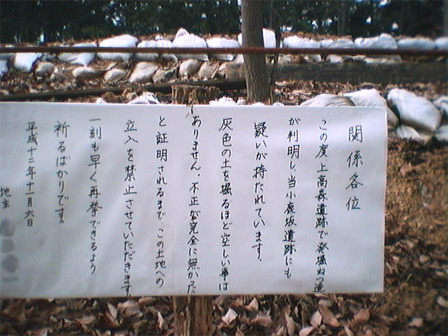 関係各位
この度上高森遺跡で発掘ねつ造
が判明し、当小鹿坂遺跡にも
疑いが持たれています。
灰色の土を掘るほど空しい事は
ありません。不正が完全に無かった
と証明されるまで、この土地への
立入を禁止させていただきます
一刻も早く再挙できるよう
祈るばかりです。
平成十二年十一月六日
地主